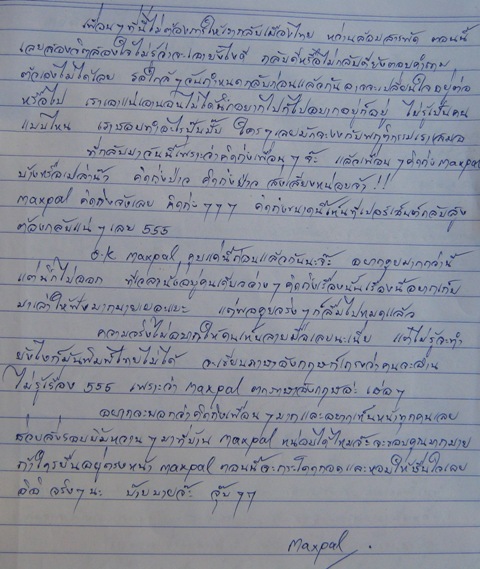 เพื่อนๆที่นี้ไม่ต้องการให้เรากลับเมืองไทย หว่านล้อมสารพัด ตอนนี้
เลยสองจิตสองใจไม่รู้ว่าจะเอายังไงดี กลับดีหรือไม่กลับดียังตอบคำถาม
ตัวเองไม่ได้เลย รอใกล้ๆวันกำหนดกลับก่อนแล้วกัน อาจจะเปลี่ยนใจอยู่ต่อ
หรือไป เราเอาแน่เอานอนไม่ได้นึกอยากไปก็ไปอยากอยู่ก็อยู่ ไม่รู้เป็นคน
แบบไหน เราชอบทำอะไรปุ๊บปั๊บ ใครๆเลยมักจะงงกับพฤติกรรมเราเสมอ
ที่กลับมาวันนี้เพราะว่าคิดถึงเพื่อนๆจ๊ะ แล้วเพื่อนๆคิดถึง maxpal
บ้างหรือเปล่าน้า คิดถึงป่าว คิดถึงป่าว ส่งเสียงหน่อยจ้า !!
maxpal คิดถึงจังเลย คิดถึง ๆๆๆ คิดถึงขนาดนี้เห็นทีเปอร์เซ็นต์กลับสูง
ต้องกลับแน่ๆเลย 555
o.k maxpal คุยแค่นี้ก่อนแล้วกันนะจ๊ะ อยากคุยมากกว่านี้
แต่นึกไม่ออก ทีเวลานั่งอยู่คนเดียวล่ะๆคิดถึงเรื่องนั้นเรื่องนี้อยากเก็บ
มาเล่าให้ฟังมากมายเยอะแยะ แต่พอคุยจริงๆก็ลืมไปหมดแล้ว
ความจริงไม่อยากให้คนเห็นลายมือเลยนะเนี่ย แต่ไม่รู้จะทำ
ยังไงก็มันพิมพ์ไทยไม่ได้ จะเขียนภาษาอังกฤษก็เกรงว่าคนจะอ่าน
ไม่รู้เรื่อง 555 เพราะว่า maxpal ตกภาษาอังกฤษล่ะ เอ่อๆ
อยากจะบอกว่าคิดถึงเพื่อนๆมากและอยากเห็นหน้าทุกคนเลย
ช่วยส่งรอยยิ้มหวานๆมาที่บ้าน maxpal หน่อยได้ไหมจ๊ะจะขอบคุณมากมาย
ถ้าใครยืนอยู่ตรงหน้า maxpal ตอนนี้จะกระโดดกอดและหอมให้ชื่นใจเลย
อิอิ จริงๆนะ บ๊ายบายจ๊ะ จุ๊บๆๆ
maxpal.